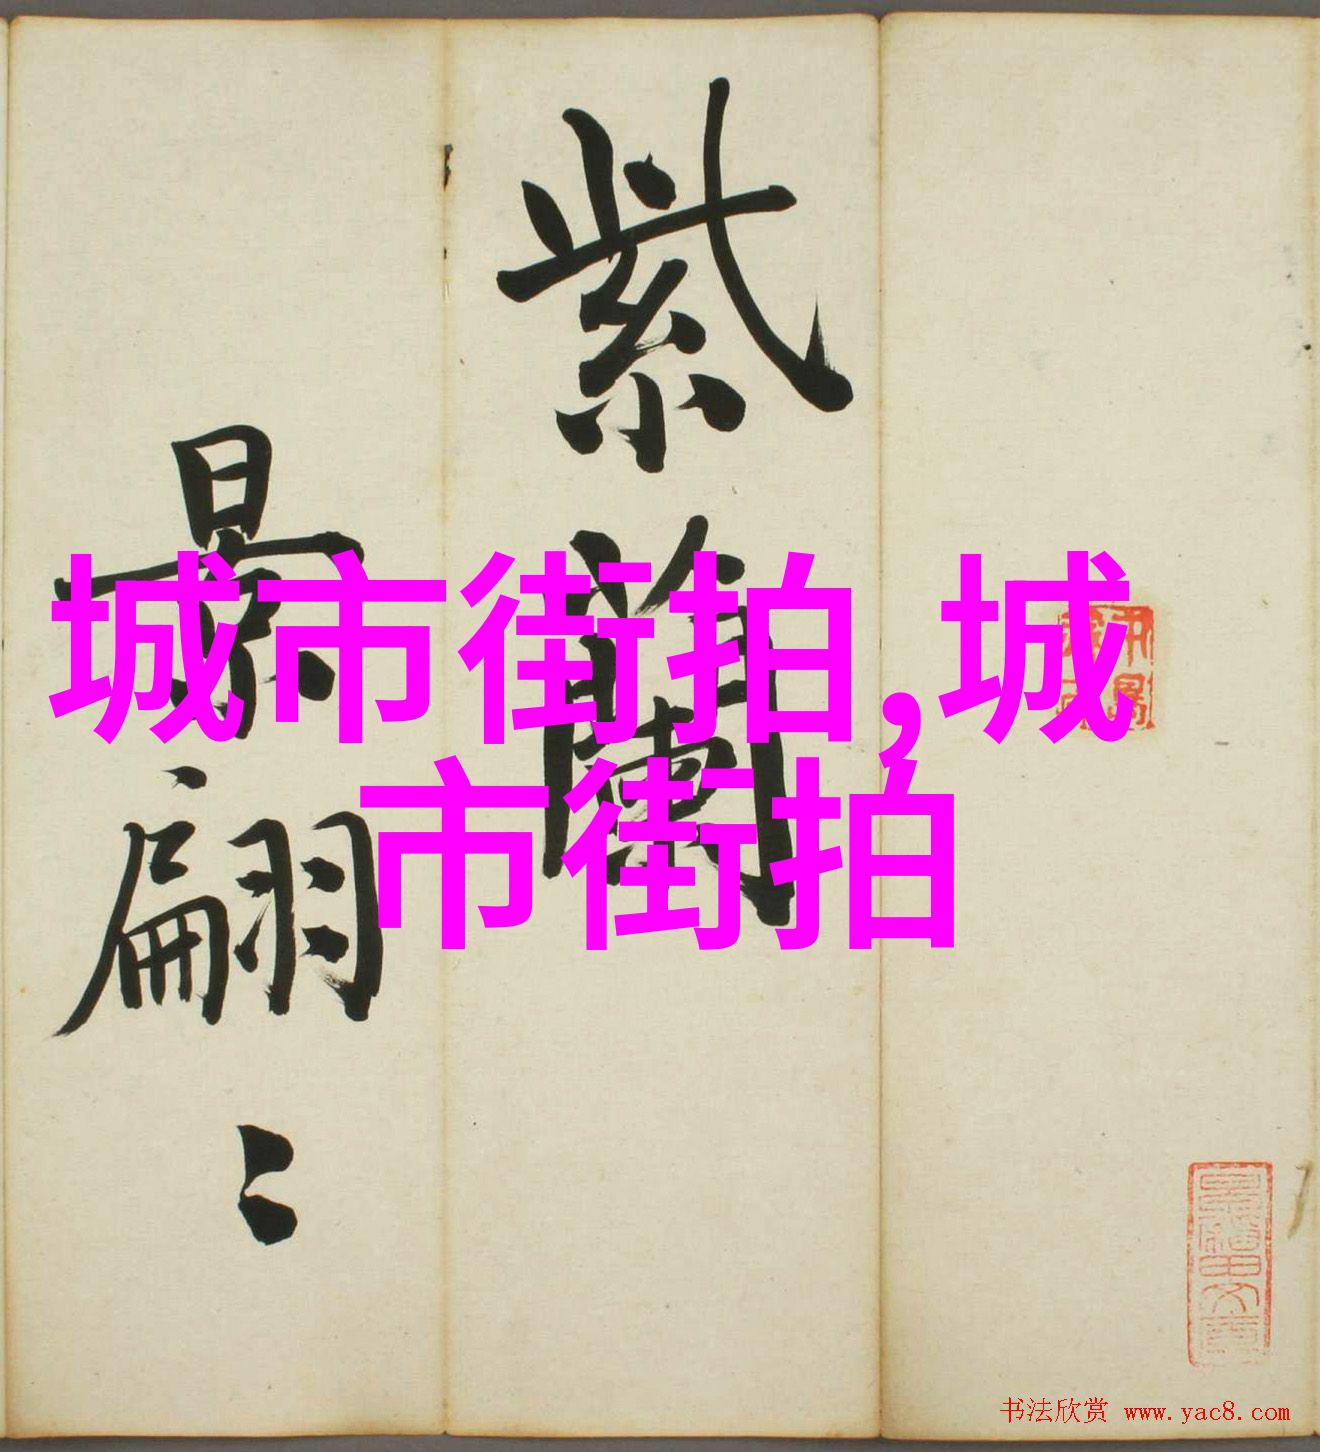 紫蘭
景翩〻
城市街拍,城
市街拍
书法欣赏 www.yac8.com